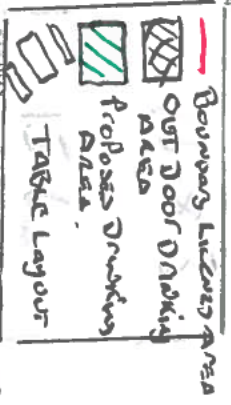 Boundary Licensed AREA
OUT Door Drinking
AREA
Proposed Drinking
AREA.
TABLE Layout